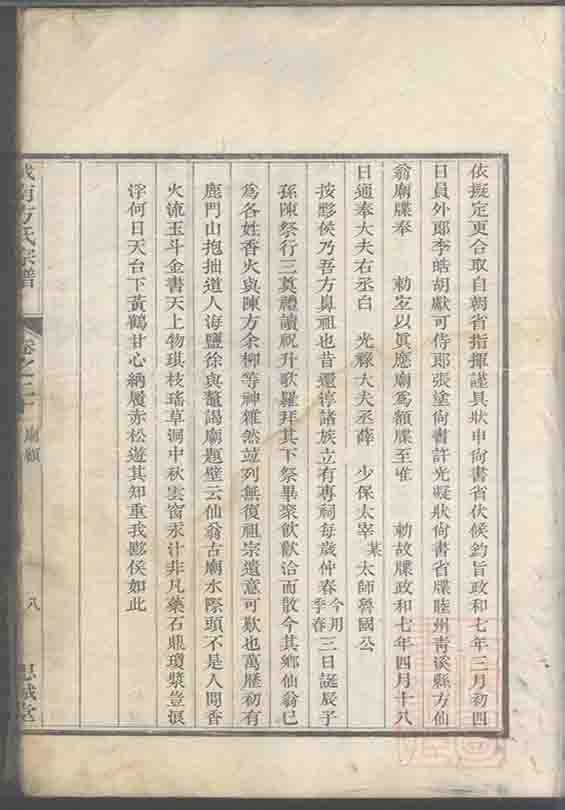 依擬定更合取自朝省指揮謹具狀申尚書省伏候鈞旨政和七年三月初四
日員外郎李皓胡獻可侍郎張塗尚書許光凝狀尚書省牒睦州青溪縣方仙
翁廟牒奉　勑宜以眞應廟爲額牒至准　勑故牒政和七年四月十八
日通奉大夫右丞白　光祿大夫丞薛　少保太宰某　太師魯國公
按黟侯乃吾方鼻祖也昔還淳諸族立有專祠每歲仲春今用季春三日誕辰子
孫陳祭行三奠禮讀祝升歌羅拜其下祭畢衆飲歡洽而散今其鄉仙翁已
爲各姓香火與陳方余柳等神雜然竝列無復祖宗遺意可歎也萬歷初有
鹿門山抱拙道人海鹽徐與鼇謁廟題壁云仙翁古廟水際頭不是人間香
火流玉斗金書天上物琪枝瑤草洞中秋雲窗汞汁非凡藥石鼎瓊漿豈浪
浮何日天台下黃鶴甘心納履赤松遊其知重我黟侯如此
南方氏宗譜
卷之二十
廟額
八
思誠堂